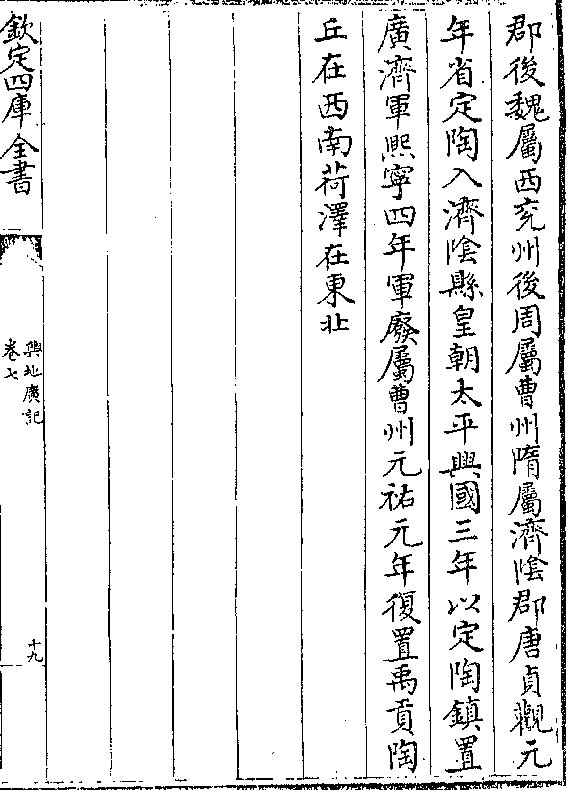 郡後魏屬西兖州後周屬曹州隋屬濟隂郡唐貞觀元
年省定陶入濟隂縣皇朝太平興國三年以定陶鎮置
廣濟軍熙寧四年軍廢屬曹州元祐元年復置禹貢陶
丘在西南荷澤在東北
欽定四庫全書
輿地廣記
卷七
十九